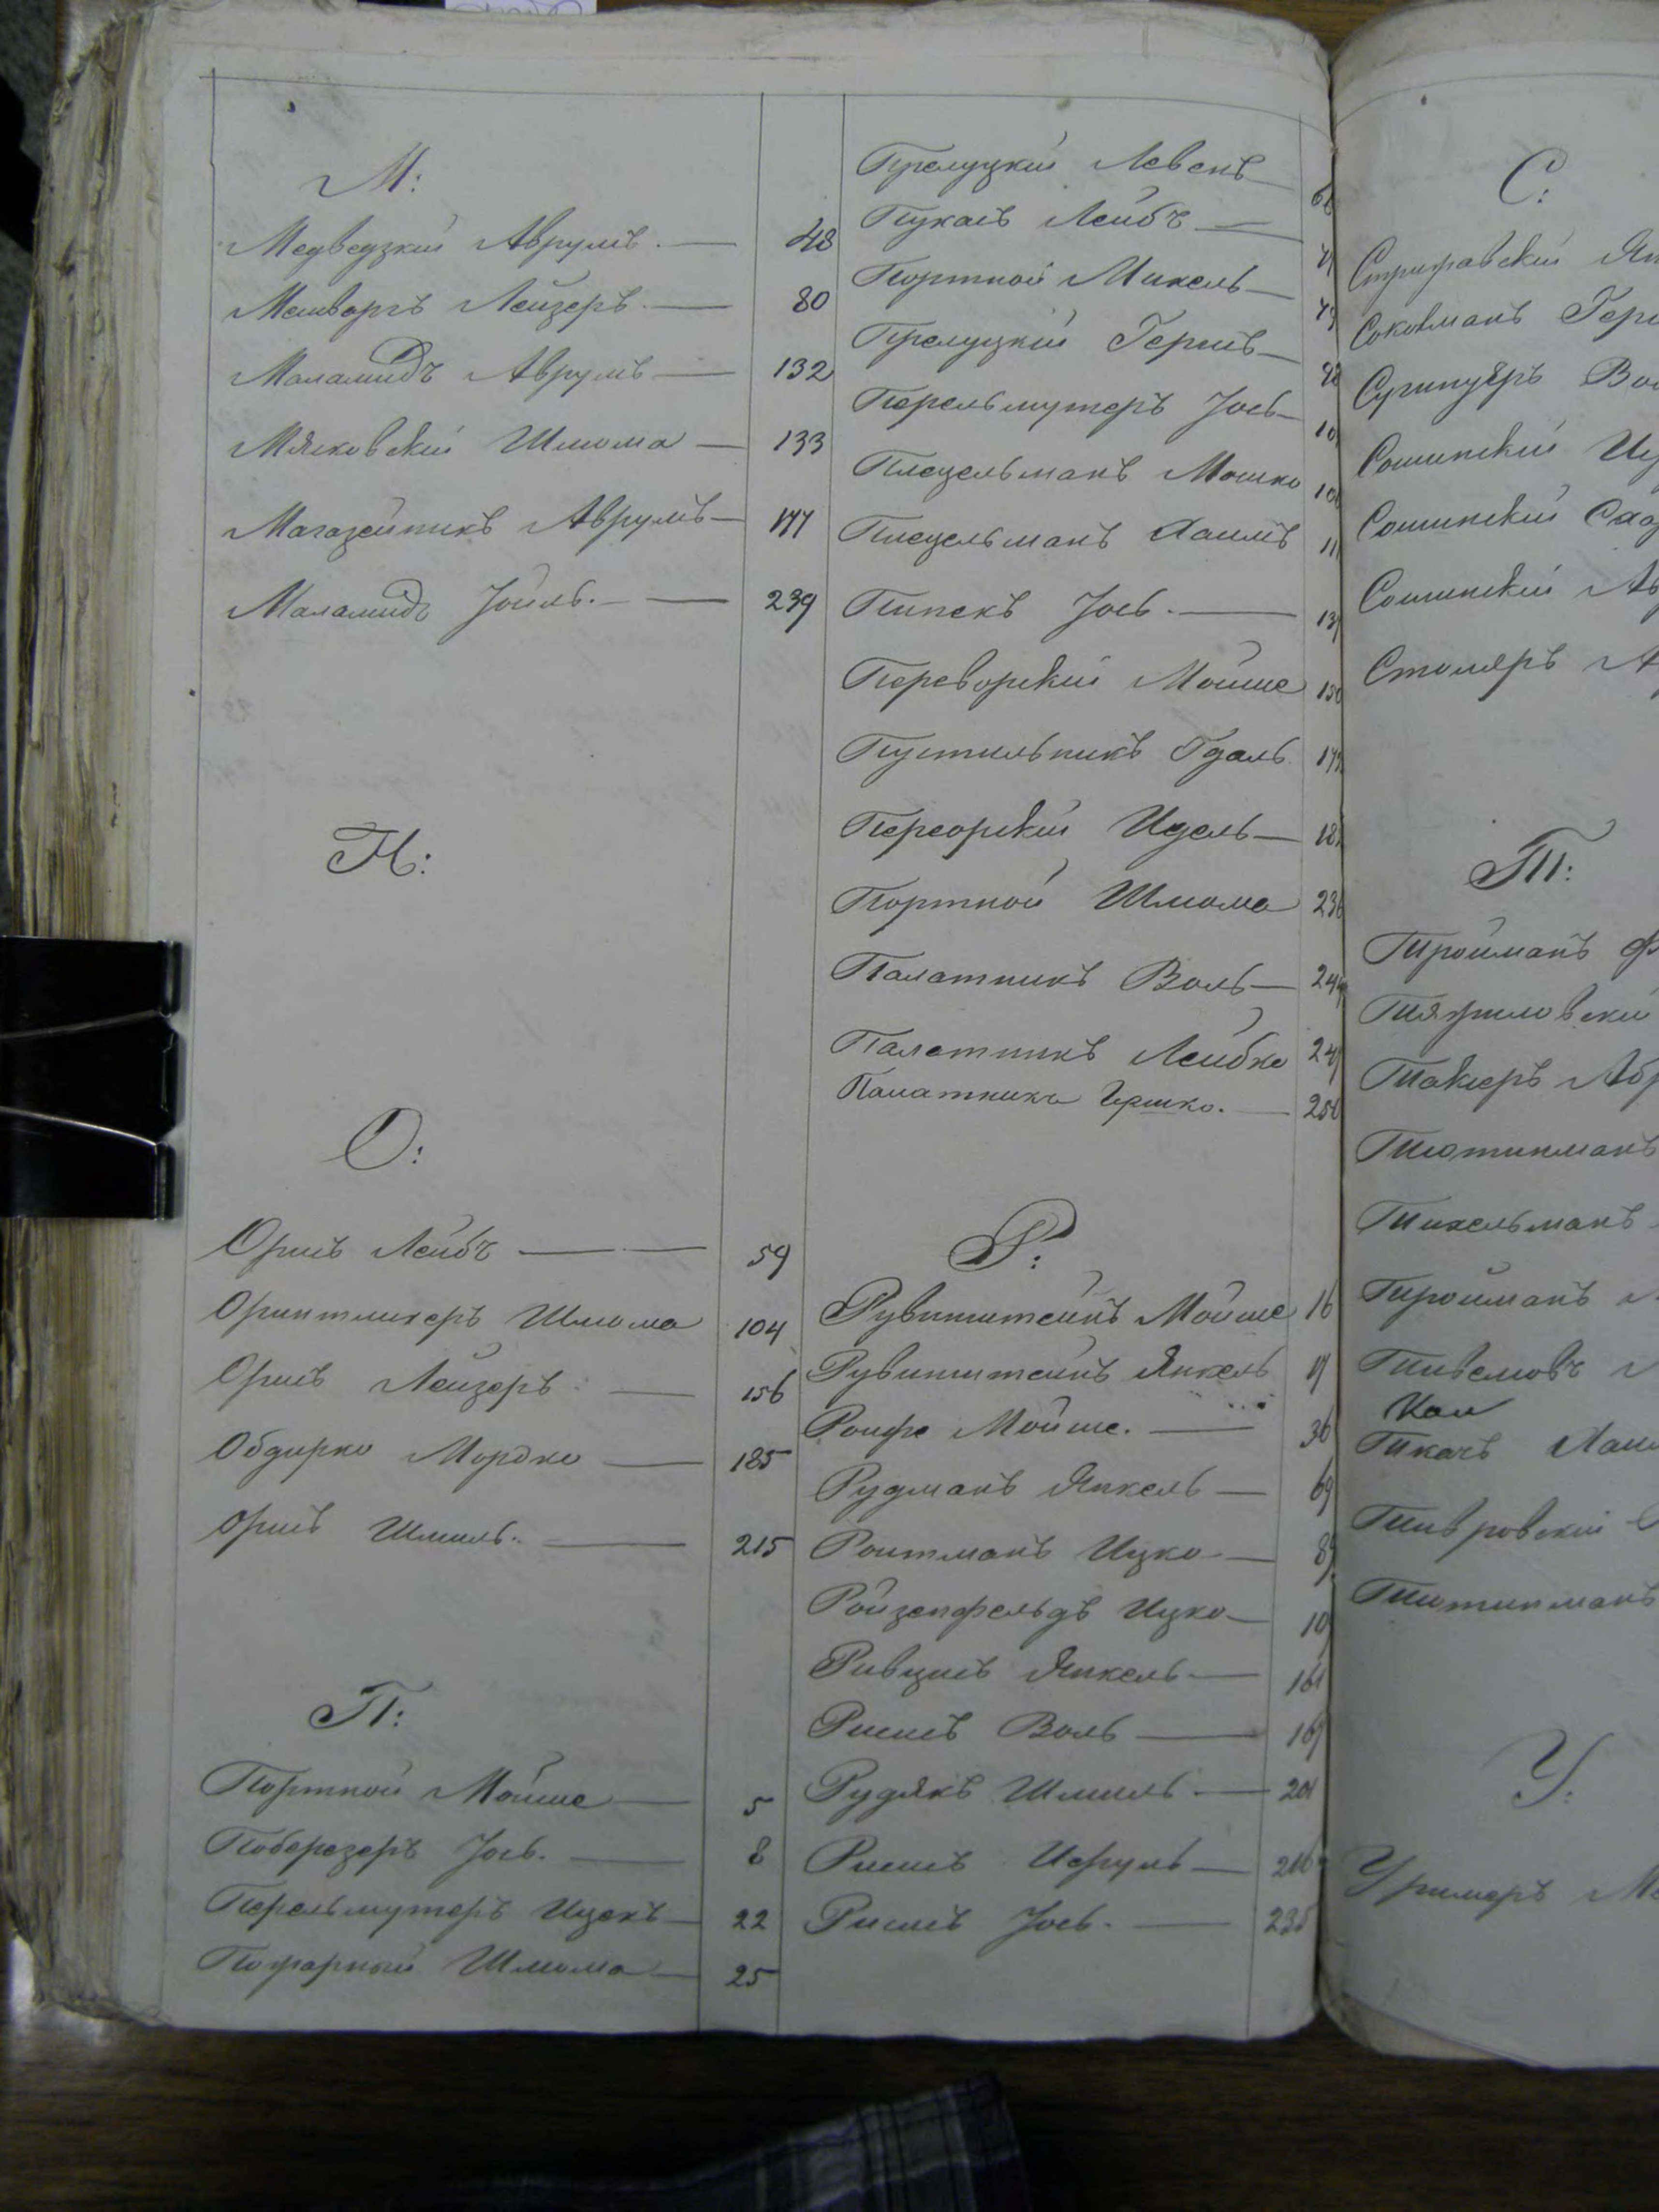 М:
Медведзкій Аврумъ. — 48
Мешворгъ Лейзеръ. — 80
Маламидъ Аврумъ — 132
Мясковскій Шлюма — 133
Магазейникъ Аврумъ — 177
Маламидъ Іойль. — 239
Н:
О:
Ориъ Лейбъ — 59
Оринтлихеръ Шлюма 104
Оришъ Лейзеръ. — 156
Обдирко Мордко — 185
Оришъ Шмиль. — 215
П:
Портной Мойше — 5
Поберезеръ Іось. — 8
Перельмутеръ Ицекъ — 22
Пожарный Шлюма — 25
Прелуцкій Левекъ —
Пукасъ Лейбъ —
Портной Михель —
Прелуцкій Гершъ —
Перельмутеръ Іось —
Плецельманъ Мошко
Плецельманъ Хаимъ
Пипекъ Іось. —
Переворскій Мойше
Пустильникъ Гдаль
Переорскій Идель —
Портной Шлюма 236
Палатникъ Воль — 244
Палатникъ Лейбко 24
Палатникъ Гершко. — 250
Р:
Рувинштейнъ Мойше 16
Рувинштейнъ Янкель
Роифе Мойше. — 36
Рудманъ Янкель — 69
Роитманъ Ицко — 8
Ройзенфельдъ Ицко — 10
Ривцисъ Янкель — 161
Ришъ Воль — 169
Рудякъ Шмиль. — 201
Ришъ Исруль — 216
Ришъ Іось. — 235
С:
Стрижавскій Ян
Сокольманъ Герш
Сошинскій Иц
Сошинскій
Сошинскій Ав
Столяръ А
Т:
Тройманъ Ф
Тяжиловскій
Такеръ Абр
Тютинманъ
Тихельманъ
Тройманъ
Ткачъ Хаим
Тивровскій
Тютинманъ
У:
Уримеръ М